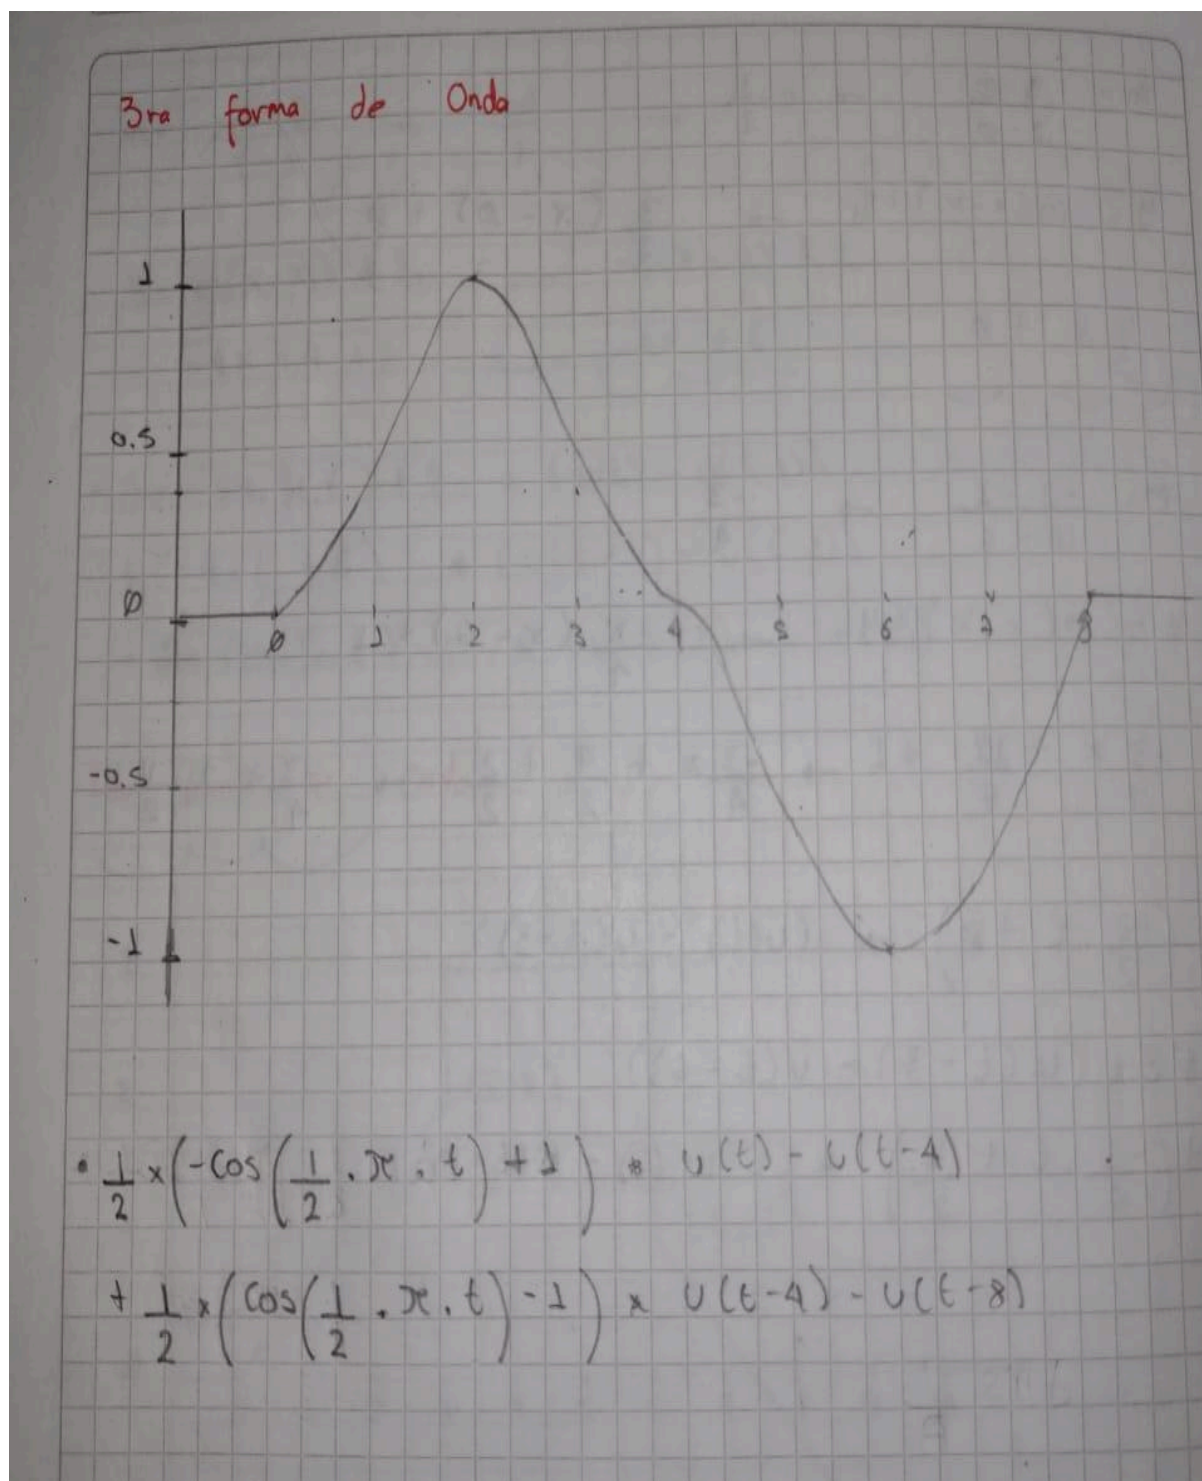 3ra forma de Onda
1
0.5
0
0 1 2 3 4 5 6 7 8
-0.5
-1
• 1/2 × (-cos(1/2 . π . t) + 1) * u(t) - u(t-4)
+ 1/2 × (cos(1/2 . π . t) - 1) × u(t-4) - u(t-8)